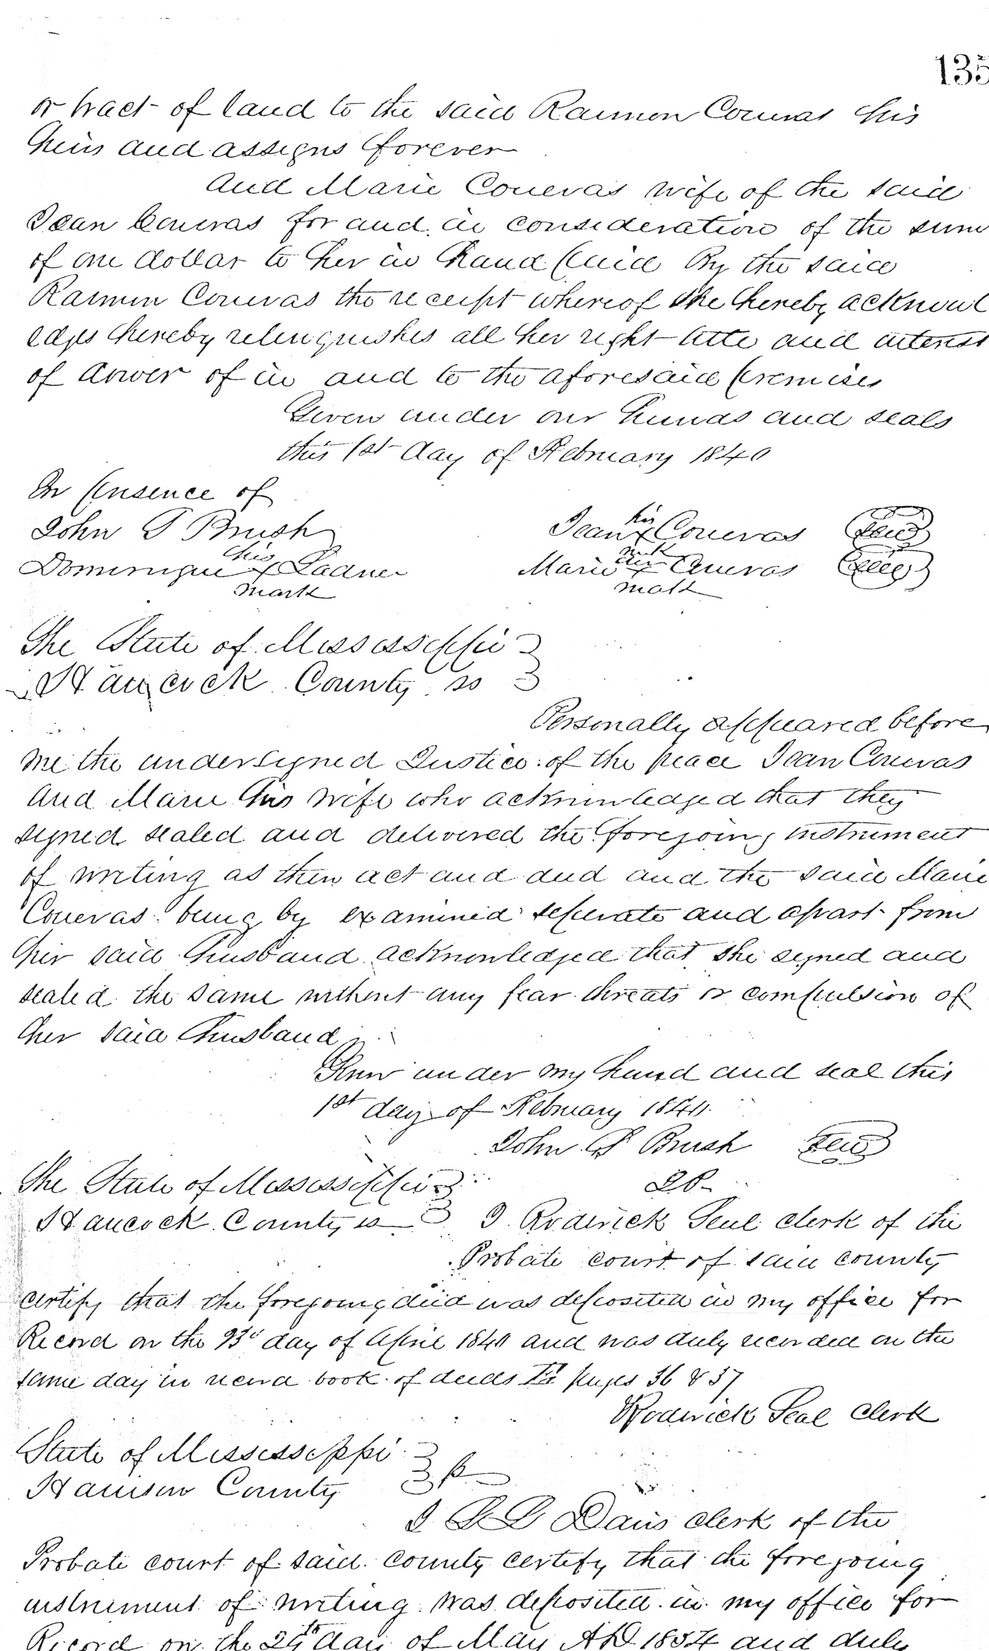 135
or tract of land to the said Raimon Couevas his
heirs and assigns forever
And Marie Couevas wife of the said
Jean Couevas for and in consideration of the sum
of one dollar to her in hand paid By the said
Raimon Couevas the receipt whereof she hereby acknowl
edges hereby relinquishes all her right title and interest
of dower of in and to the aforesaid premises
Given under our hands and seals
this 1st day of February 1840
In presence of
John Brush his Jean x Couevas seal
mark
Dominique his x Ladner Marie her x Couevas seal
mark mark
The State of Mississippi
Hancock County ss
Personally appeared before
me the undersigned Justice of the peace Jean Couevas
And Marie his wife who acknowledged that they
signed sealed and delivered the foregoing instrument
of writing as their act and deed and the said Marie
Couevas being by examined seperate and apart from
her said husband acknowledged that she signed and
sealed the same without any fear threats or compulsion of
her said husband
Given under my hand and seal this
1st day of February
John Brush seal
The State of Mississippi JP
Hancock County ss I Roderick Seal clerk of the
Probate court of said county
certify that the foregoing deed was deposited in my office for
Record on the day of April and was duly recorded on the
same day in record book of deeds pages 36 & 37
Roderick Seal clerk
State of Mississippi
Harrison County ss
I Davis clerk of the
Probate court of said county certify that the foregoing
instrument of writing was deposited in my office for
Record on the 24th day of May AD 1854 and duly